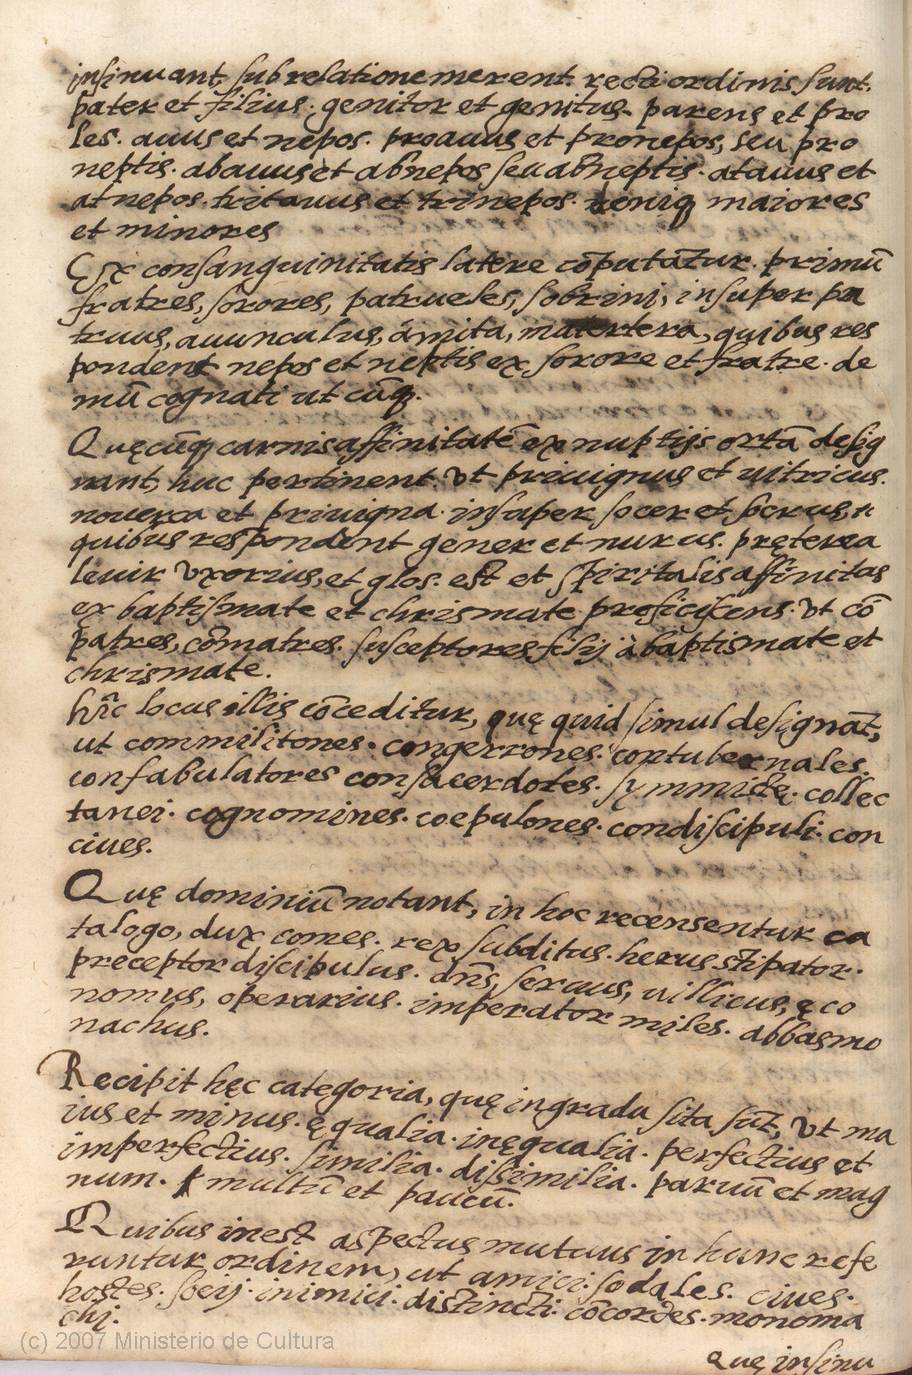 insinuant, sub relatione merent. recti ordinis sunt.
pater et filius. genitor et genitus. parens et pro
les. auus et nepos. proauus et pronepos, seu pro
neptis. abauus et abnepos seu abneptis. atauus et
atnepos. tritauus et trinepos. deniq maiores
et minores
Ex consanguinitatis latere cōputātur. primū
fratres, sorores, patrueles, sobrini, insuper pa
truus, auunculus, amita, matertera, quibus res
pondent nepos et neptis ex sorore et fratre. de
mū cognati ut cūq.
Quęcūq carnis affinitatē ex nuptijs ortā desig
nant, huc pertinent. vt priuignus et uitricus.
nouerca et priuigna. insuper socer et socrus,
quibus respondent gener et nurus. pręterea
leuir vxorius, et glos. est et spiritalis affinitas
ex baptismate et chrismate proficiscens. vt cō
patres, cōmatres. susceptores filij à baptismate et
chrismate.
hīc locus illis cōceditur, quę quid simul designāt,
ut commilitones. congerrones. contubernales.
confabulatores consacerdotes. symmistę. collec
tanei. cognomines. coepulones. condiscipuli. con
ciues.
Quę dominiū notant, in hoc recensentur ca
talogo, dux comes. rex subditus. herus stipator.
preceptor discipulus. dn̄s, seruus, uillicus, ęco
nomus, operarius. imperator miles. abbas mo
nachus.
Recipit hęc categoria, quę in gradu sita sūt, vt ma
ius et minus. ęqualia. inęqualia. perfectius et
imperfectius. similia. dissimilia. paruū et mag
num. multū et paucū.
Quibus inest aspectus mutuus in hunc refe
runtur ordinem, ut amici. sodales. ciues.
hostes. socij. inimici. distincti. cōcordes. monoma
chi.
quę insinu
(c) 2007 Ministério de Cultura